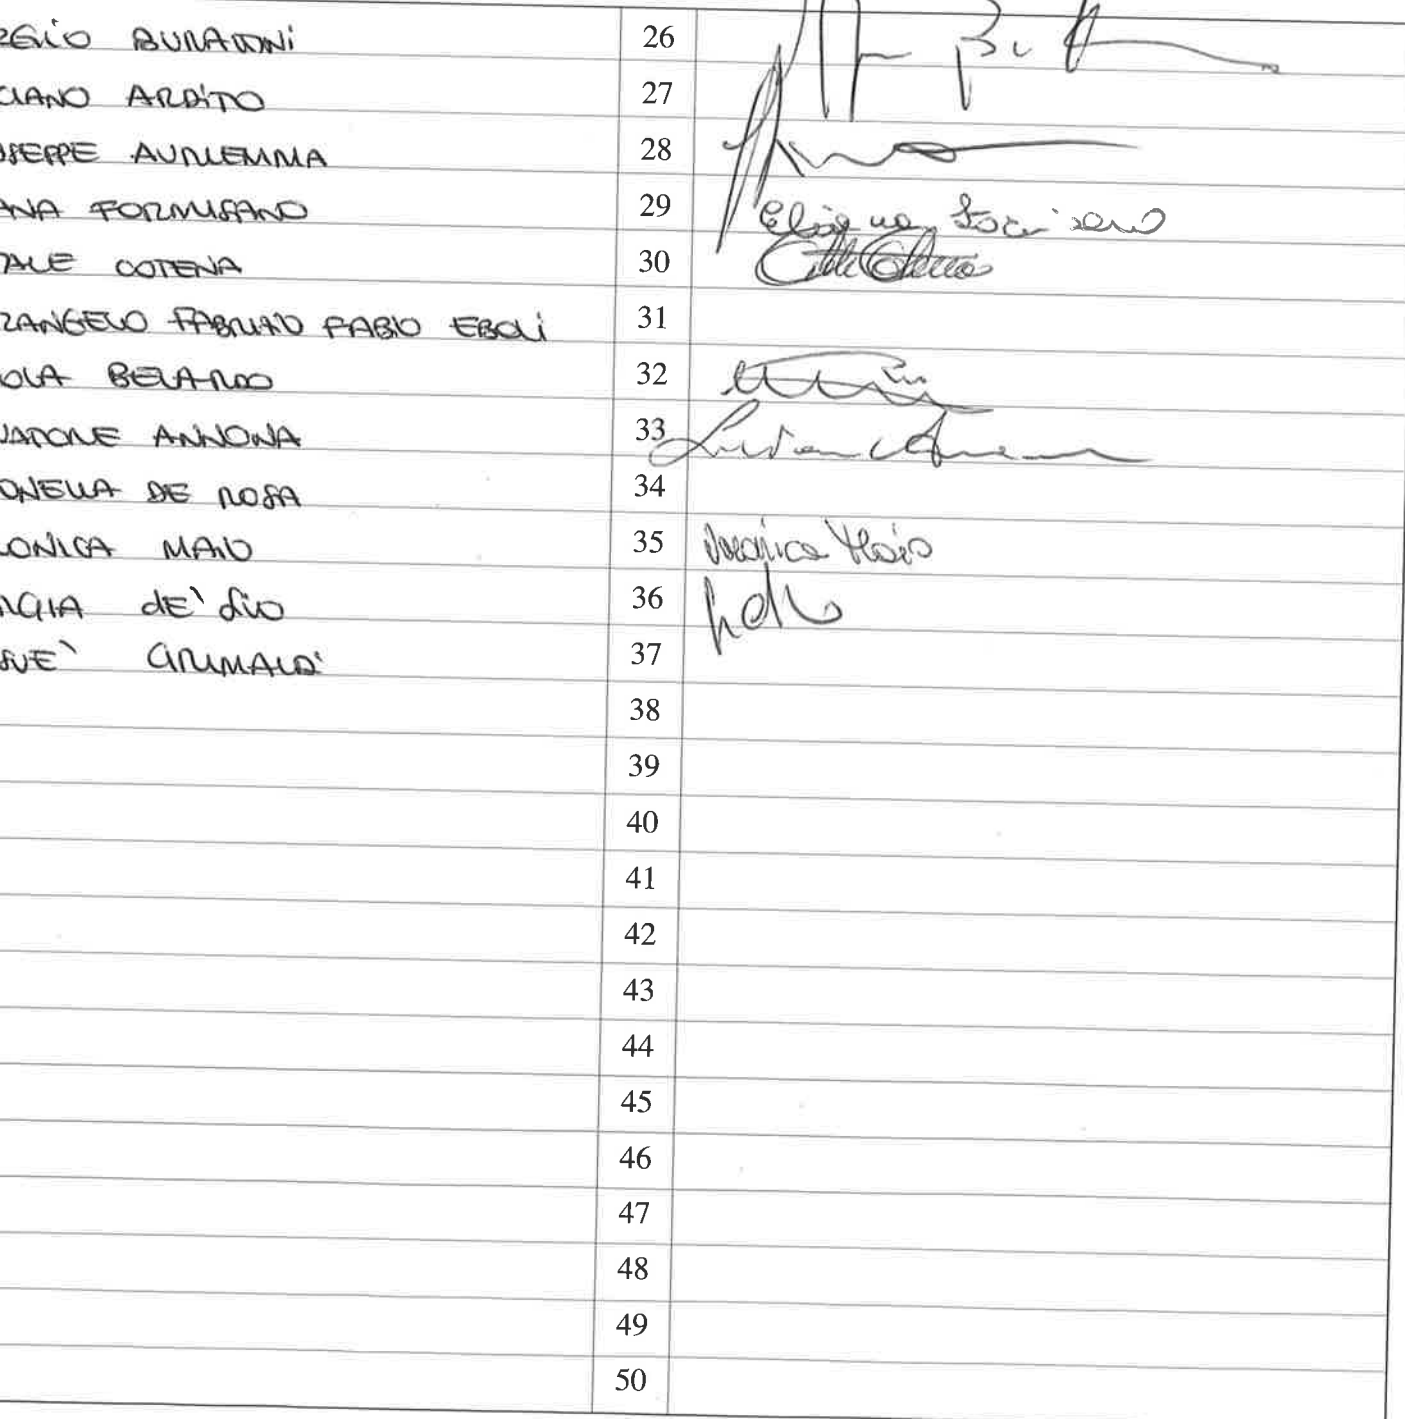 RGIO BURATTINI 26
CIANO ARDITO 27
USEPPE AURIEMMA 28
ANA FORMISANO 29 Eliana Formisano
TALE COTENA 30
RANGELO FABRIZIO FABIO EBOLI 31
OLA BELARDO 32
VATORE ANNONA 33
ONELLA DE ROSA 34
RONICA MAIO 35 Veronica Maio
RGIA dE' LIO 36
SUE' GRIMALDI 37
38
39
40
41
42
43
44
45
46
47
48
49
50